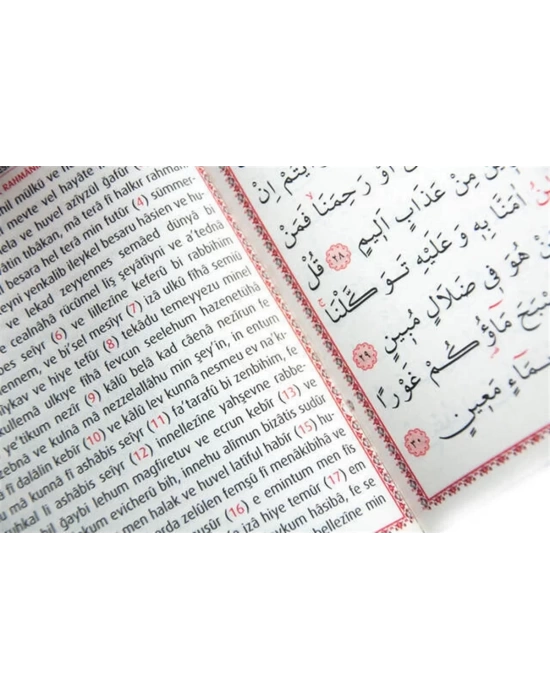 RAHMANİ
mil mülkü ve h
meyte vel hayâte
ve huvel azîyzül ğafûr (2)
tıbâkan, mâ terâ fî halkır rahmâni
besara hel terâ min futûr (4) sümmer-
teyni yenkalib ileykel besaru hâsien ve hu-
ve lekad zeyyennes semâed dünyâ bi
ve cealnâhâ rücûmel liş şeyâtîyni ve a'tednâ
bes seîyr (6) ve lillezîne keferû bi rabbihim
ennem, ve bi'sel mesîyr (7) izâ ulkû fîhâ semiû
hîykav ve hiye tefûr (8) tekâdu temeyyezu minel
kullemâ ulkıye fîhâ fevcun seelehum hazenetühâ
e'tikum nezîr (9) kâlû belâ kad câenâ nezîrun fe
zzebnâ ve kulnâ mâ nezzelallâhu min şey'in, in entum
â fî dalâlin kebîr (10) ve kâlû lev kunnâ nesmeu ev na'k-
mâ kunnâ fî ashâbis seîyr (11) fa'tarafû bi zenbihim, fe
uhkal li ashâbis seîyr (12) innellezîne yahşevne rabbe-
bil ğaybi lehum mağfiretuv ve ecrun kebîr (13) ve
kum evicherû bih, innehu alîmun bizâtis sudûr
men halak ve huvel latîful habîr (15) hu-
arda zelûlen femşû fî menâkibihâ ve
nuşûr (16) e emintum men fis
izâ hiye temûr (17) em
eykum hâsibâ, fe se
bellezîne min
اَوْ رَحِمَنَاۙ فَمَنْ
مِنْ عَذَابٍ اَلٖيمٍ ﴿٢٨﴾ قُلْ
اٰمَنَّا بِهٖ وَعَلَيْهِ تَوَكَّلْنَاۚ
هُوَ فٖي ضَلَالٍ مُبٖينٍ ﴿٢٩﴾
مَٓاؤُ۬كُمْ غَوْرًا
مَعٖينٍ ﴿٣٠﴾